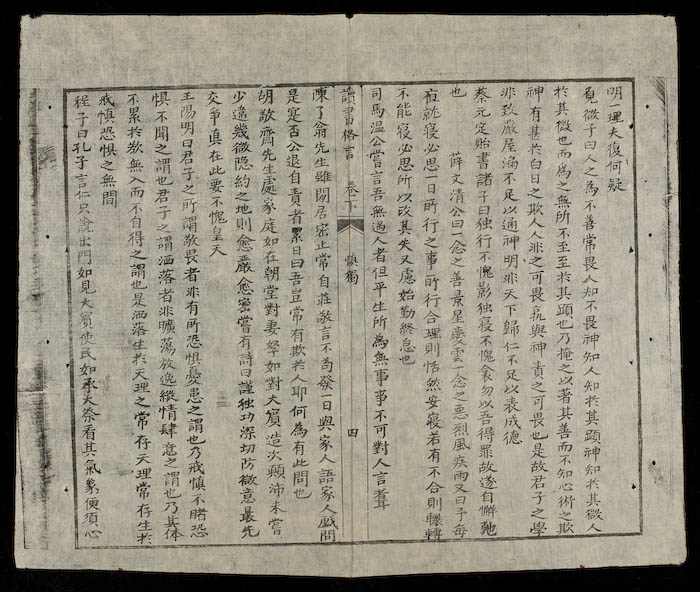 明一理夫復何疑
魯齋許子曰人之為不善常畏人知不畏神知人知於其顯神知於其微人
於其微也而為之無所不至至於其顯也乃掩之以著其善而不知心術之欺
神有甚於白日之欺人人非之可畏孰與神責之可畏也是故君子之學
非致嚴屋漏不足以通神明非天下歸仁不足以表成德
蔡元定貽書諸子曰獨行不愧影獨寢不愧衾勿以吾得罪故遂自懈
也 薛文清公曰一念之善景星慶雲一念之惡烈風疾雨又曰予每
夜就寢必思一日所行之事所行合理則恬然安寢若有不合則輾轉
不能寢必思所以改其失又慮始勤終怠也
司馬溫公嘗言吾無過人者但平生所為無事不可對人言耳
讀書格言 卷下 慎獨 四
陳了翁先生雖閒居容止常自莊敬言不苟發一日與家人語家人戲問
是實否公退自責者累日曰吾豈常有欺於人耶何為有此問也
胡敬齋先生處家庭如在朝堂對妻孥如對大賓造次顛沛未嘗
少違幾微隱約之地則愈嚴愈密嘗有詩曰謹独功深切防微意最先
交爭真在此要不愧皇天
王陽明曰君子之所謂敬畏者非有所恐懼憂患之謂也乃戒慎不睹恐
懼不聞之謂也君子之所謂洒落者非曠蕩放逸縱情肆意之謂也乃其体
不累於欲無入而不自得之謂也是洒落生於天理之常存天理常存生於
戒慎恐懼之無間
程子曰孔子言仁只說出門如見大賓使民如承大祭看其氣象便須心